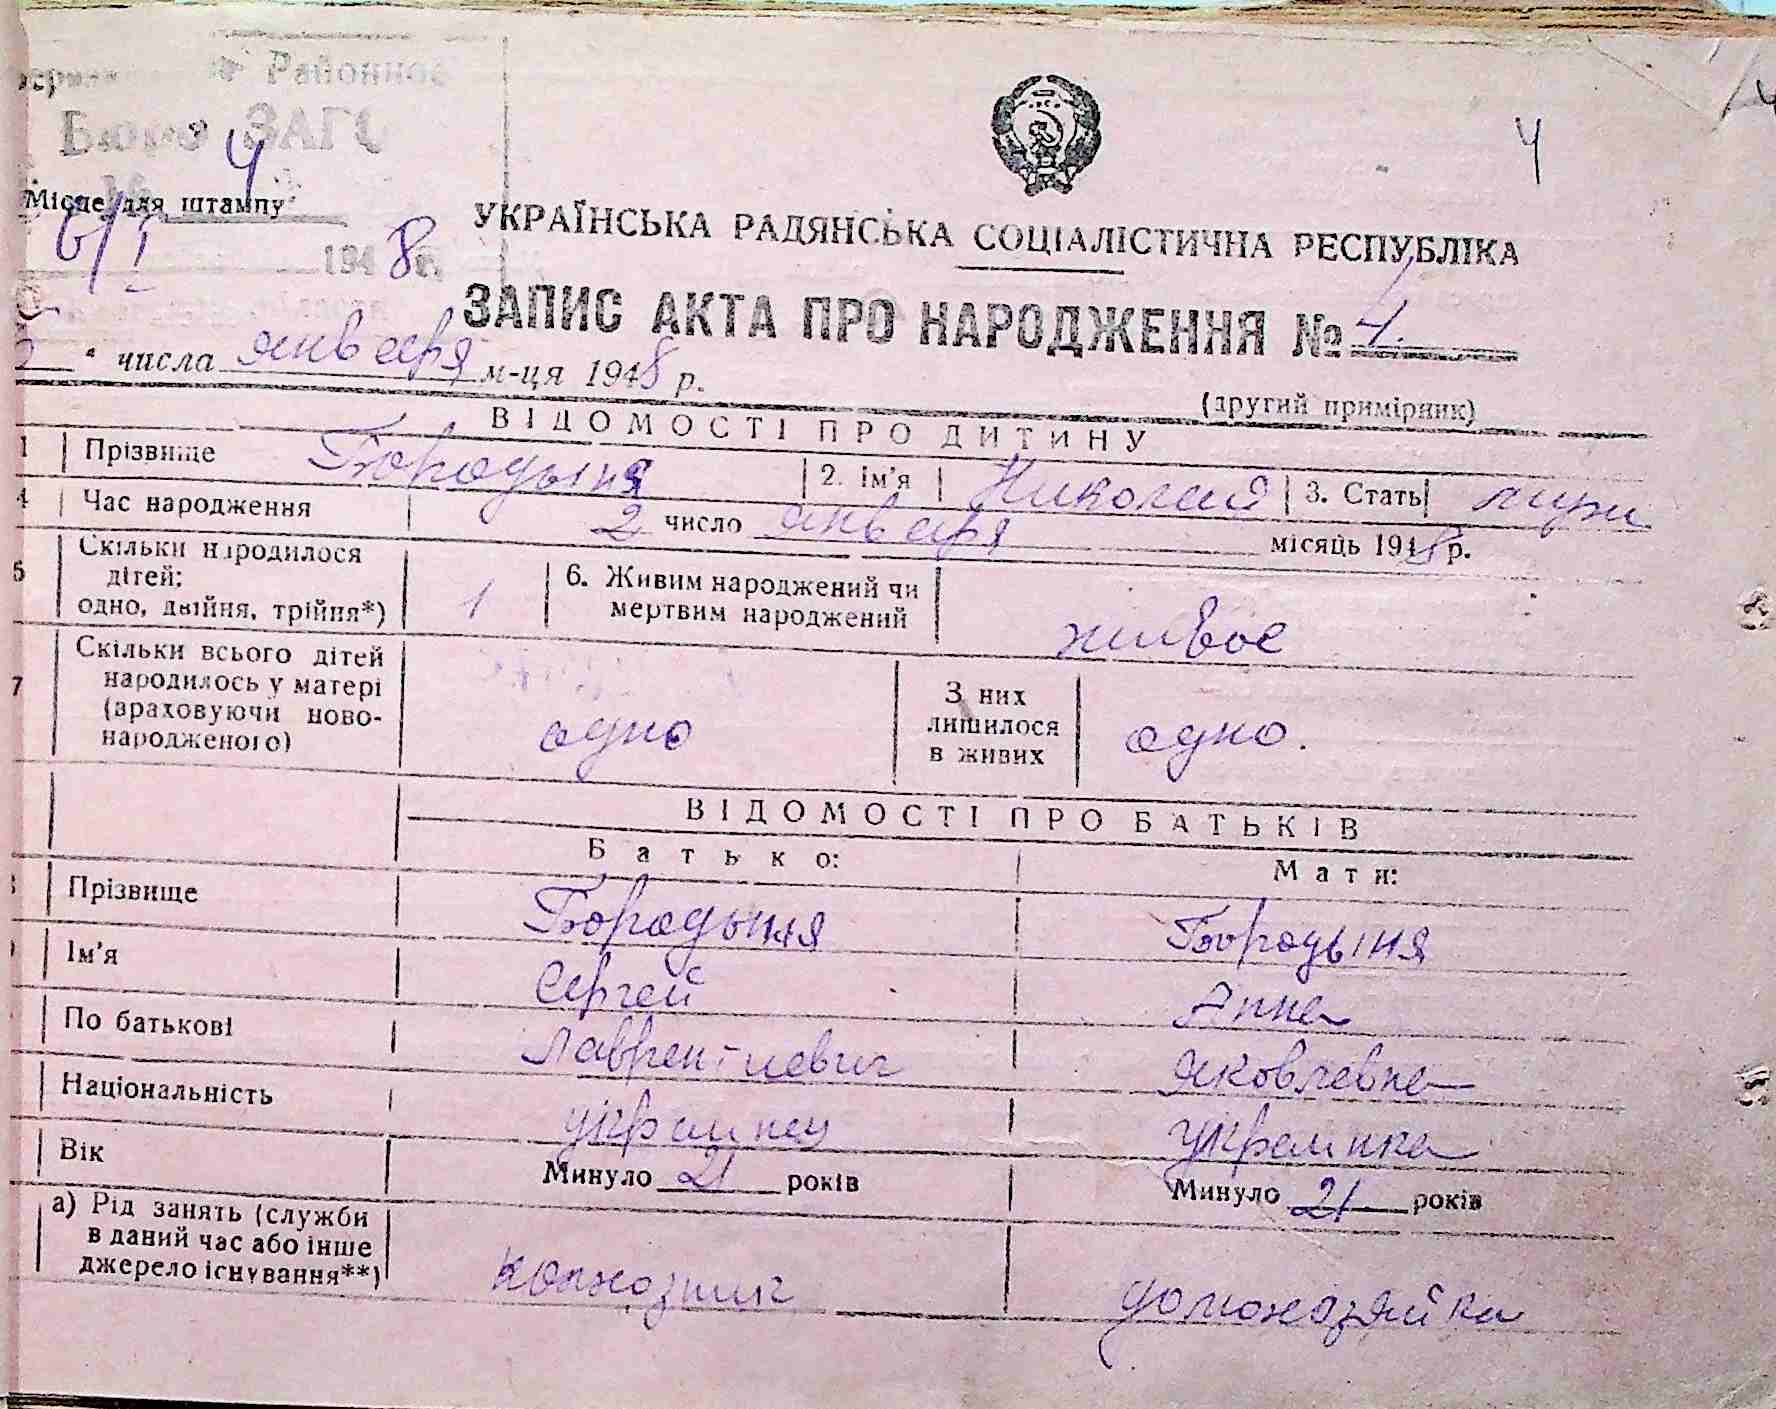 Районное
Бюро ЗАГС
4
4
Місце для штампу
6/I 1948 г.
УКРАЇНСЬКА РАДЯНСЬКА СОЦІАЛІСТИЧНА РЕСПУБЛІКА
ЗАПИС АКТА ПРО НАРОДЖЕННЯ № 4.
" числа января м-ця 1948 р.
(другий примірник)
ВІДОМОСТІ ПРО ДИТИНУ
1 Прізвище Бородыня 2. Ім'я Николай 3. Стать муж
4 Час народження 2 число января місяць 1948 р.
5 Скільки народилося дітей: одно, двійня, трійня*) 1 6. Живим народжений чи мертвим народжений живое
7 Скільки всього дітей народилось у матері (враховуючи ново-народженого) одно З них лишилося в живих одно.
ВІДОМОСТІ ПРО БАТЬКІВ
Батько: Мати:
Прізвище Бородыня Бородыня
Ім'я Сергей Анна
По батькові Лаврентиевич Яковлевна
Національність украинец украинка
Вік Минуло 21 років Минуло 21 років
а) Рід занять (служби в даний час або інше джерело існування**) колхозник домохозяйка